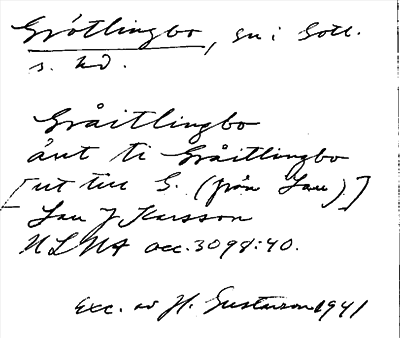 Grötlingbo, sn i Gotl.
s. hd.
Gråitlingbo
äut ti Gråitlingbo
[ut till G. (från Lau).]
Lau J Karsson
NLNA acc. 3098:40.
Exc. av H. Gustavson 1941